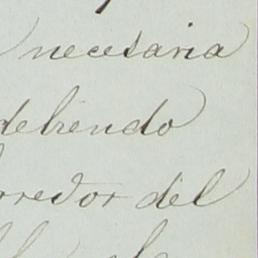 necesaria
debiendo
rredor del